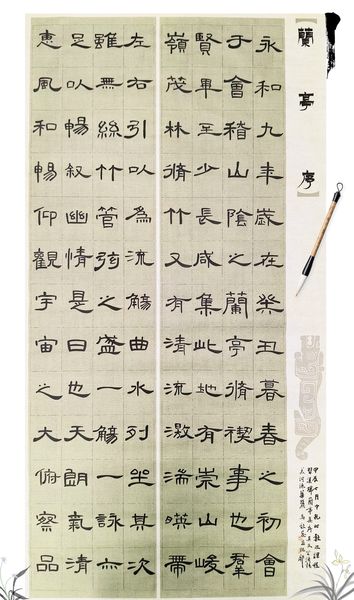 【蘭亭序】
永和九年歲在癸丑暮春之初會
于會稽山陰之蘭亭脩禊事也羣
賢畢至少長咸集此地有崇山峻
嶺茂林脩竹又有清流激湍暎帶
左右引以為流觴曲水列坐其次
雖無絲竹管弦之盛一觴一詠亦
足以暢叙幽情是日也天朗氣清
惠風和暢仰觀宇宙之大俯察品